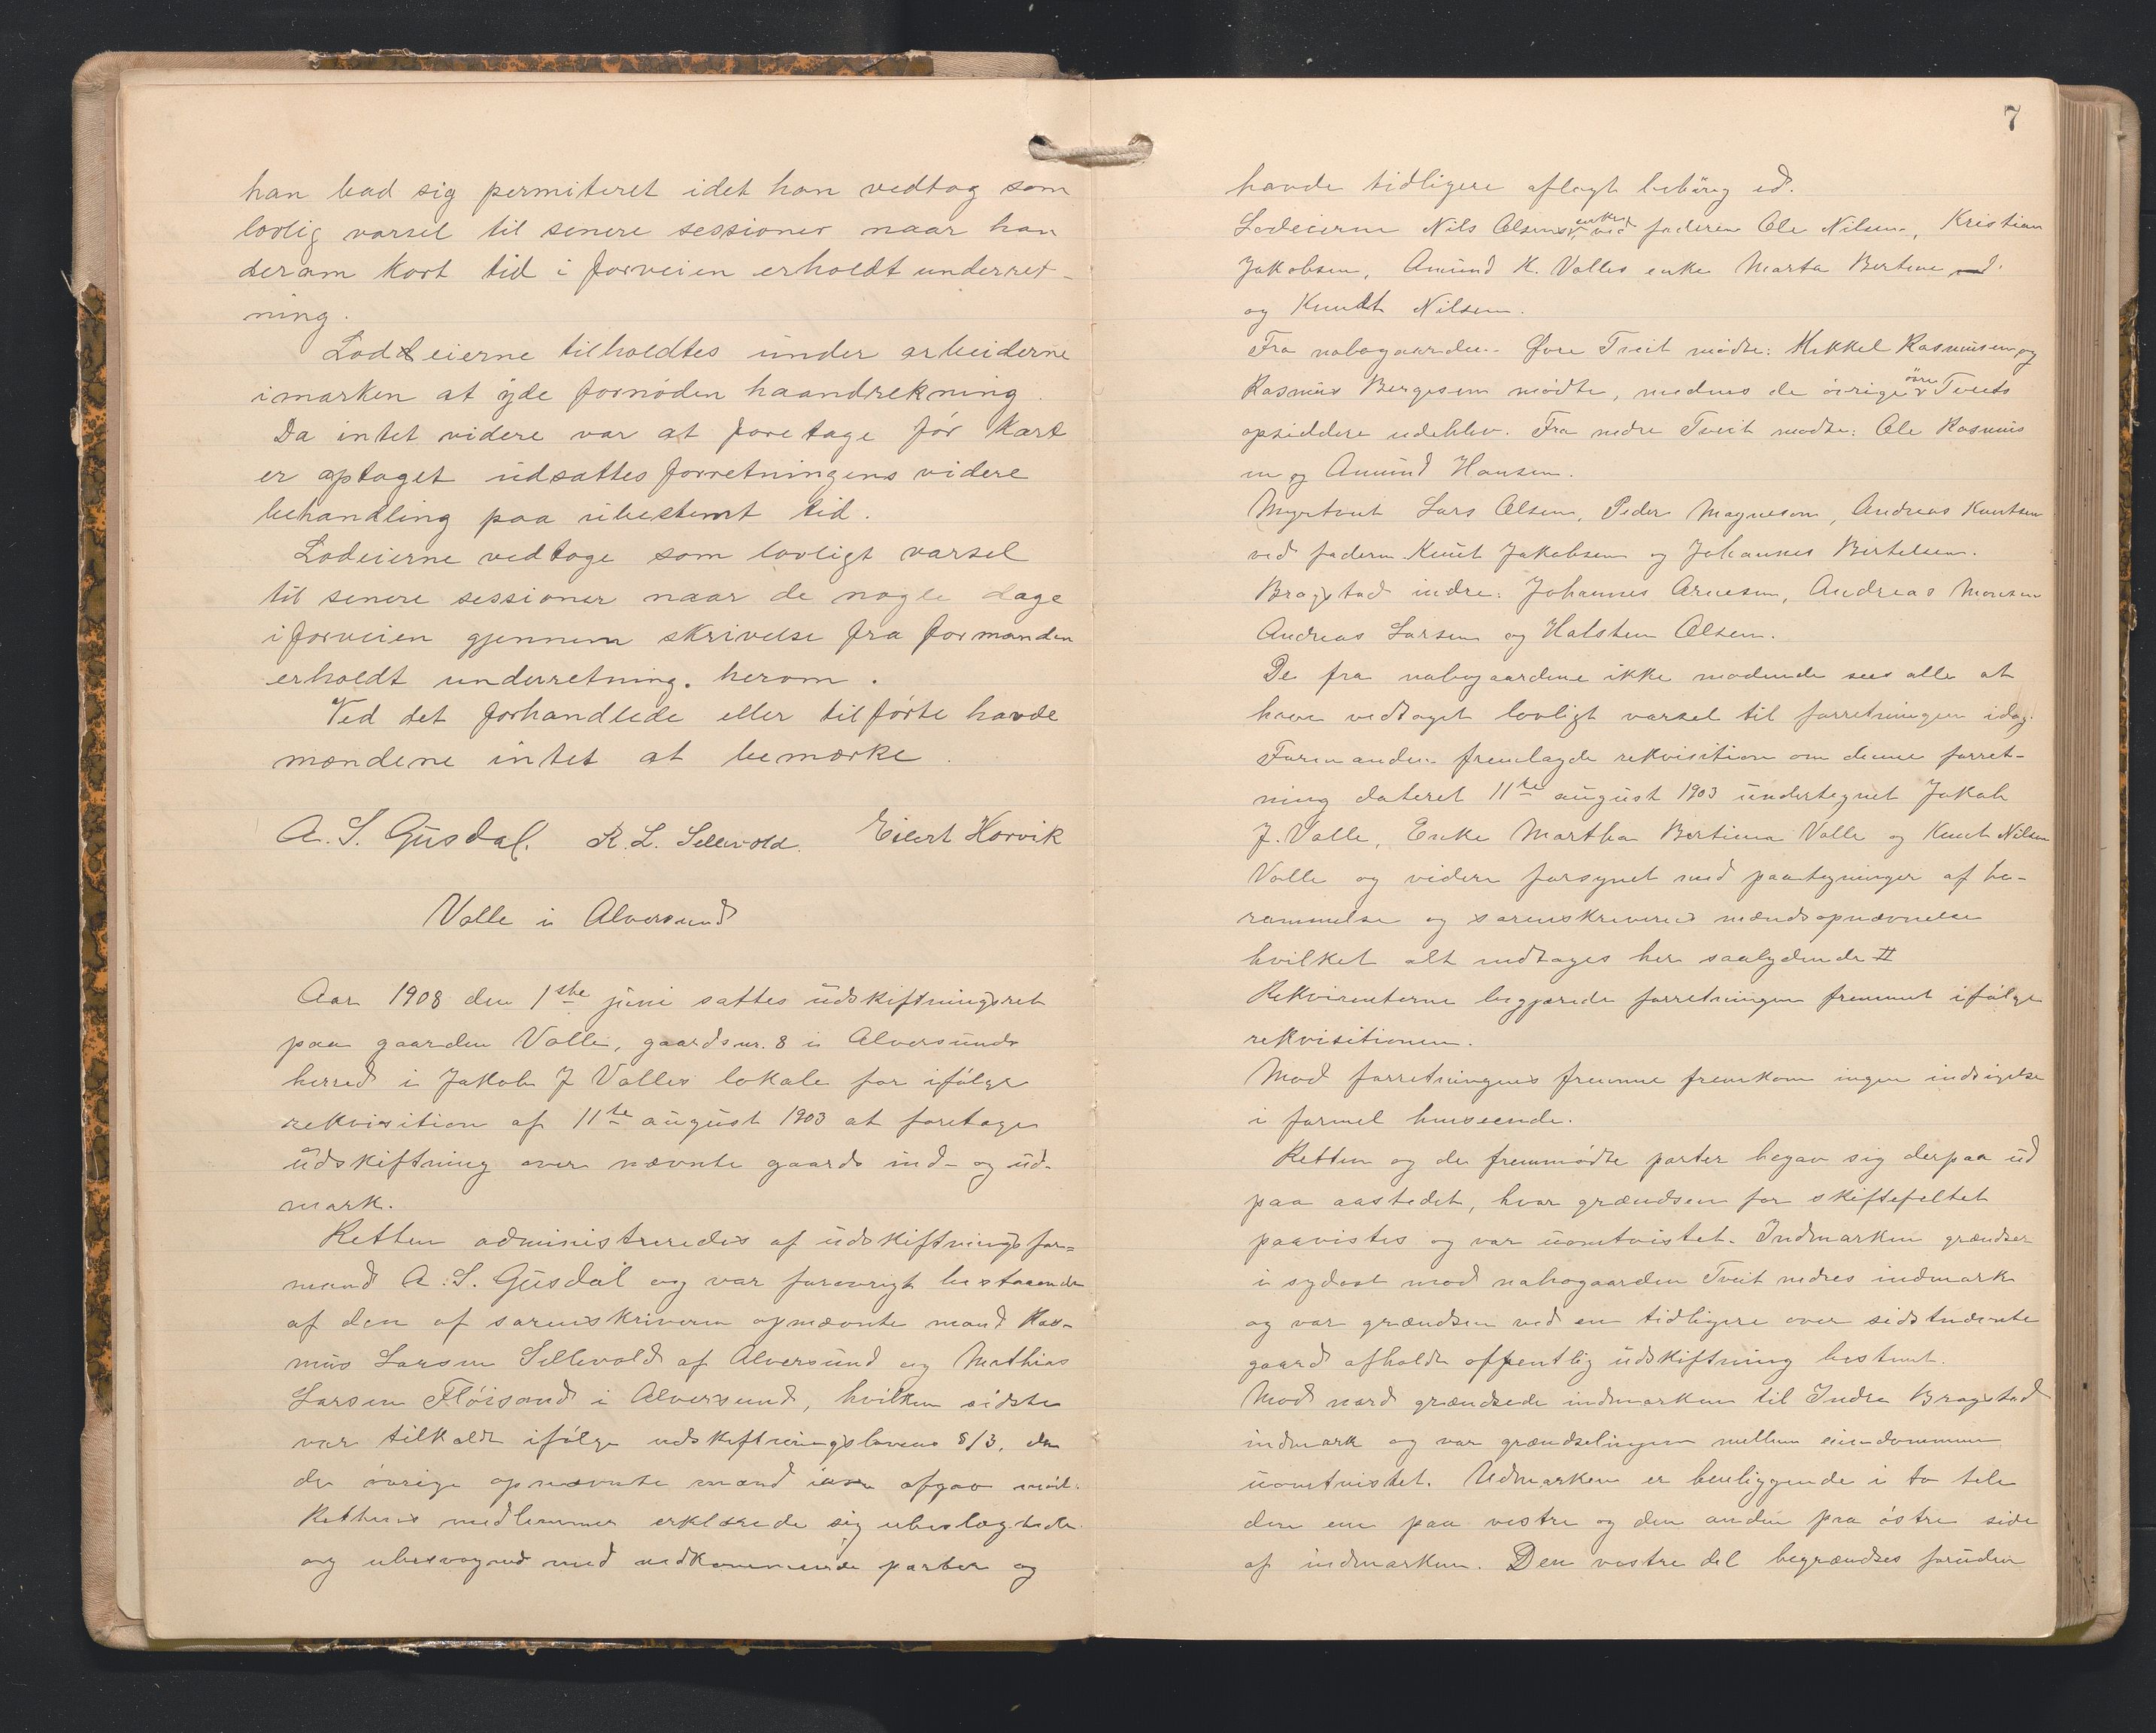 han bad sig permiteret idet han vedtog som
lovlig varsel til senere sessioner naar han
derom kort tid i forveien erholdt underret-
ning.
Lodeierne tilholdtes under arbeiderne
i marken at yde fornøden haandrekning.
Da intet videre var at foretage før kart
er optaget udsattes forretningens videre
behandling paa ubestemt tid.
Lodeierne vedtoge som lovligt varsel
til senere sessioner naar de nogle dage
i forveien gjennem skrivelse fra formanden
erholdt underretning. herom.
Ved det forhandlede eller tilførte havde
mændene intet at bemærke.
A. S. Gusdal. R. L. Sellevold. Eilert Horvik
Valle i Alversund
Aar 1908 den 1ste juni sattes udskiftningsret
paa gaarden Valle, gaardsnr. 8 i Alversunds
herred i Jakob J Valles lokale for ifølge
rekvisition af 11te august 1903 at foretage
udskiftning over nævnte gaards ind- og ud-
mark.
Retten administreredes af udskiftningsfor=
mand A. S. Gusdal og var forøvrigt bestaaende
af den af sorenskriveren opnævnte mand Ras-
mus Larsen Sellevold af Alversund og Mathias
Larsen Fløisand i Alversund, hvilken sidste
var tilkaldt ifølge udskiftningslovens § 13, da
de øvrige opnævnte mænd afgav
Rettens medlemmer erklærede sig ubeslægtede
og ubesvogred med vedkommende parter og
7
havde tidligere aflagt ed.
Lodeierne Nils Olsens enke ved faderen Ole Nilsen, Kristian
Jakobsen, Amund K. Valles enke Marta Bertine
og Knudt Nilsen.
Fra nabogaarden Øvre Tveit mødte: Mikkel Rasmusen og
Rasmus Bergesen mødte, medens de øvrige øvre Tveits
opsiddere udeblev. Fra nedre Tveit mødte: Ole Rasmus
en og Amund Hansen.
Myrtveit Lars Olsen, Peder Magnesen, Andreas Knutsen
ved faderen Knut Jakobsen og Johannes Bertelsen.
Bragstad indre: Johannes Arnesen, Andreas Monsen
Andreas Larsen og Halsten Olsen.
De fra nabogaardene ikke mødende sees alle at
have vedtaget lovligt varsel til forretningen idag.
Formanden fremlagde rekvisition om denne forret-
ning dateret 11te august 1903 undertegnet Jakob
J. Valle, Enke Martha Bertina Valle og Knut Nilsen
Valle og videre forsynet med paategninger af be-
rammelse og sorenskriverens mændsopnævnelse
hvilket alt indtages her saalydende #
Rekvirenterne begjærede forretningen fremmet ifølge
rekvisitionen.
Mod forretningens fremme fremkom ingen indsigelse
i formel henseende.
Retten og de fremmødte parter begav sig derpaa ud
paa aastedet, hvor grændsen for skiftefeltet
paavistes og var uomtvistet. Indmarken grændser
i sydost mod nabogaarden Tveit nedres indmark
og var grændsen ved en tidligere over sidstnævnte
gaard afholdt offentlig udskiftning bestemt.
Mod nord grændsede indmarken til Indre Bragstad
indmark og var grændselinjen mellem eiendommene
uomtvistet. Udmarken er beliggende i to dele
den ene paa vestre og den anden paa østre side
af indmarken. Den vestre del begrændses foruden